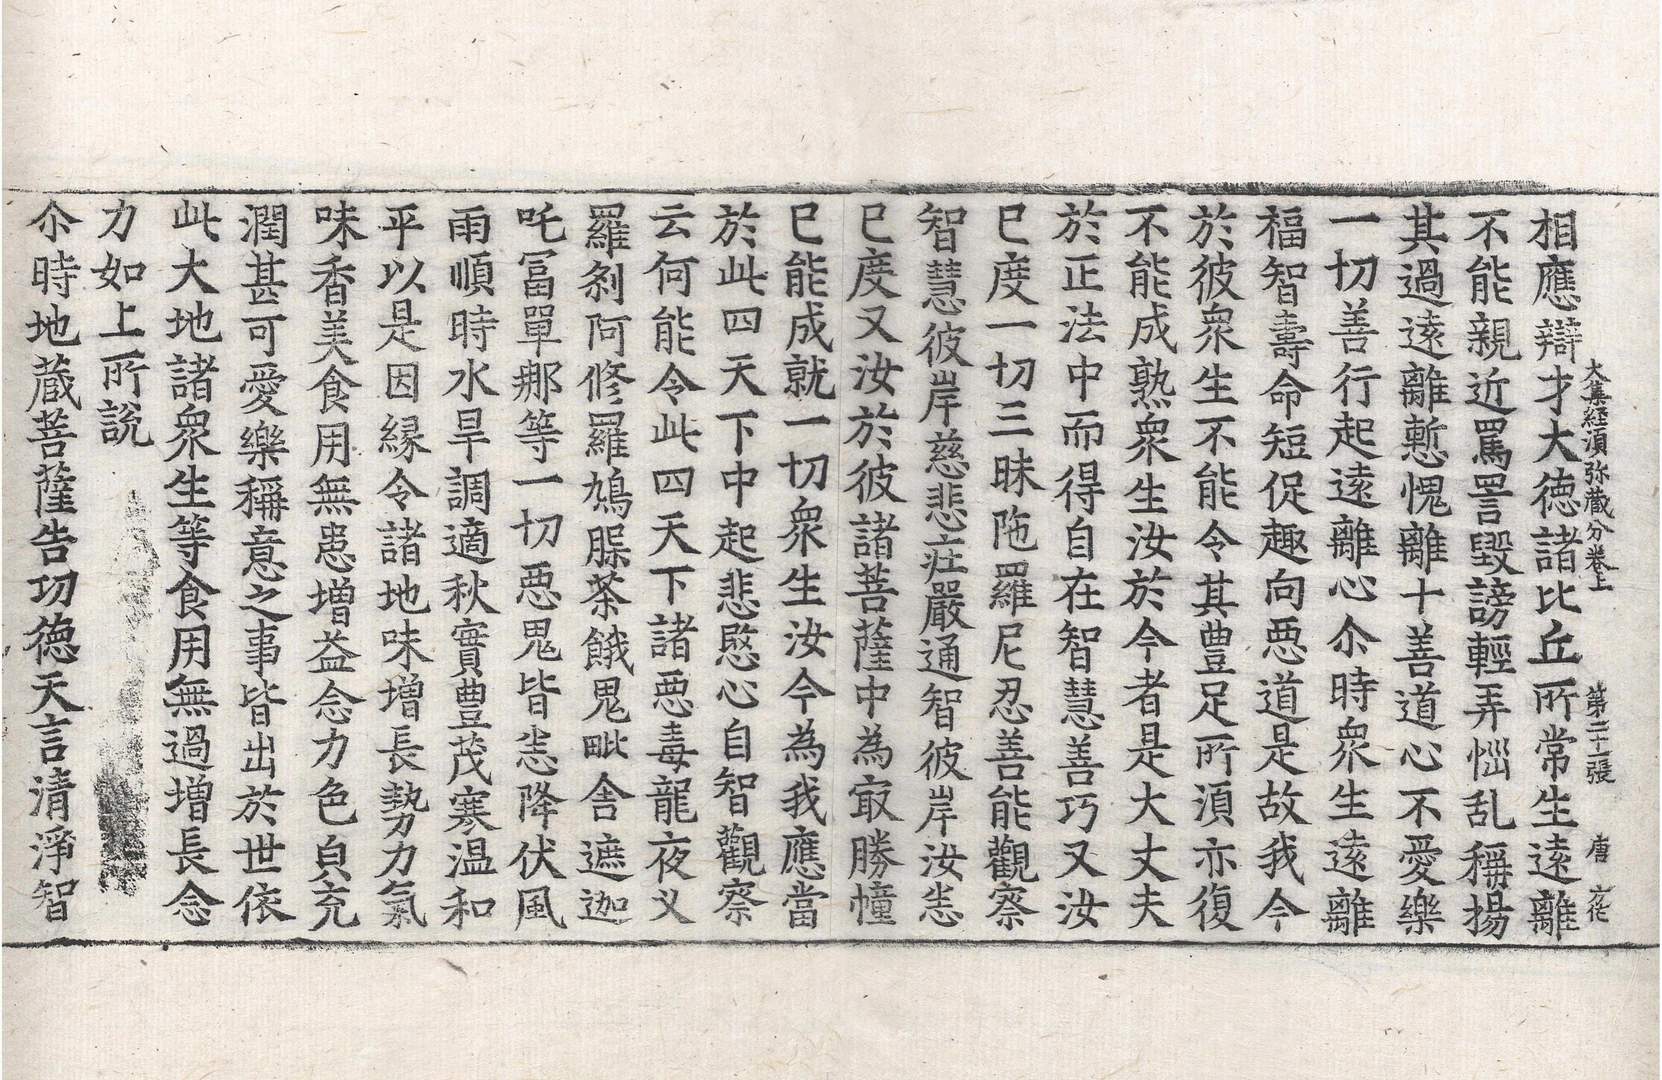 大集經須弥藏分卷上 第二十張 唐
相應辯才大徳諸比丘所常生遠離
不能親近罵詈毀謗輕弄惱乱稱揚
其過遠離慙愧離十善道心不愛樂
一切善行起遠離心尒時衆生遠離
福智壽命短促趣向惡道是故我今
於彼衆生不能令其豊足所湏亦復
不能成熟衆生汝於今者是大丈夫
於正法中而得自在智慧善巧又汝
已度一切三昧陁羅尼忍善能觀察
智慧彼岸慈悲庄嚴通智彼岸汝悉
已度又汝於彼諸菩薩中為㝡勝幢
已能成就一切衆生汝今為我應當
於此四天下中起悲愍心自智觀察
云何能令此四天下諸惡毒龍夜叉
羅刹阿修羅鳩腺茶餓鬼毗舍遮迦
吒冨單那等一切惡鬼皆悉降伏風
雨順時水旱調適秋實豊茂寒温和
平以是因縁令諸地味增長勢力氣
味香美食用無患增益念力色貟充
潤甚可愛樂稱意之事皆出於世依
此大地諸衆生等食用無過增長念
力如上所説
尒時地蔵菩薩告功徳天言清淨智